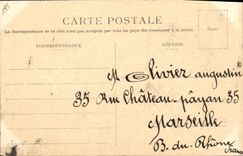 CARTE POSTALE
La Correspondance au recto n'est pas acceptée par tous les pays
CORRESPONDANCE
ADRESSE
M Olivier augustin
35 Rue Château-payan 35
Marseille
B. du Rhône